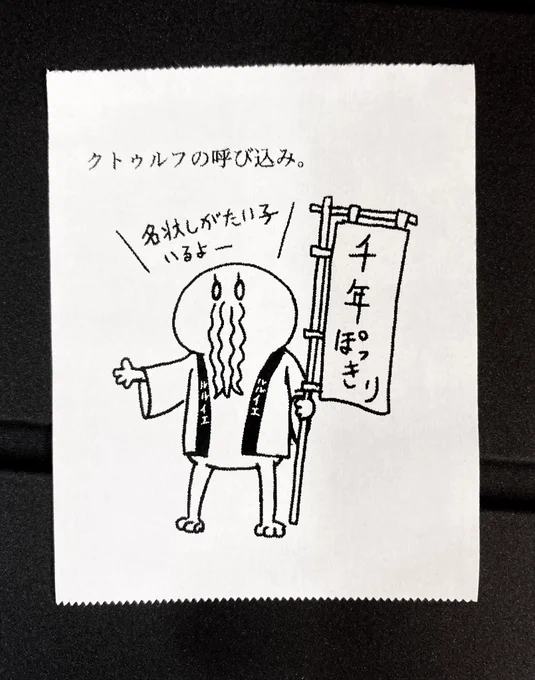 クトゥルフの呼び込み。
名状しがたい子
いるよー
千年ぽっきり
ルルイエ
ルルイエ